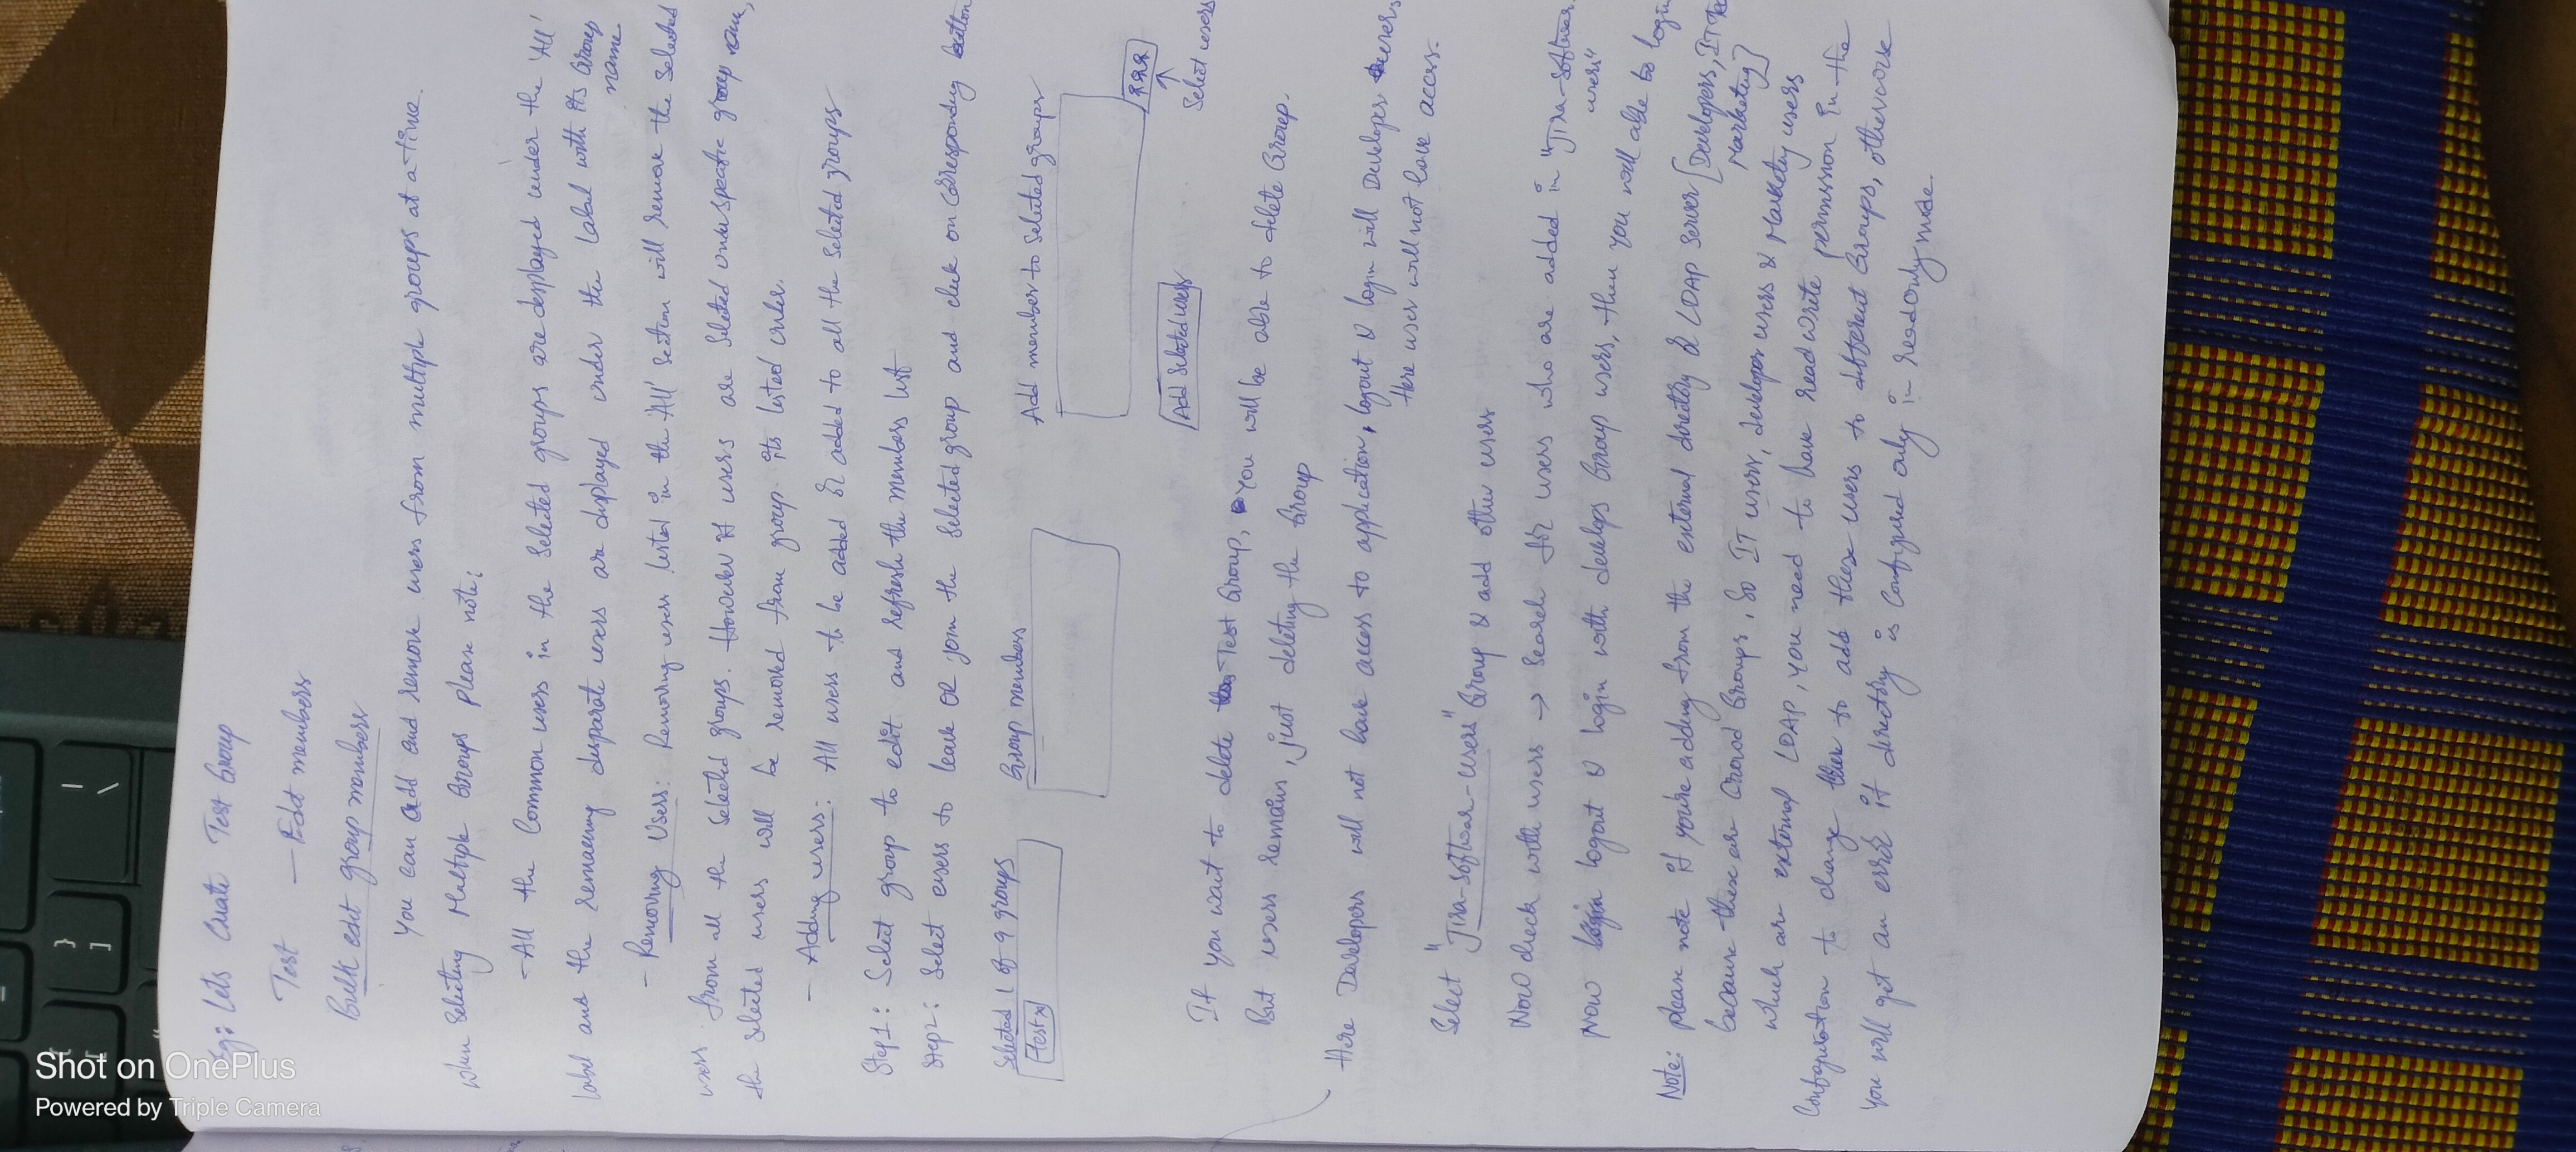 Shot on OnePlus
Powered by Triple Camera
}
]
|
\
Eg: Lets Create Test Group
Test — Edit members
Bulk edit group members
You can add and remove users from multiple groups at a time.
when Selecting Multiple Groups please note:
- All the Common users in the Selected groups are displayed under the 'All'
label and the remaining disparate users are displayed under the Label with its Group
name.
- Removing Users: Removing users listed in the 'All' Section will remove the Selected
users from all the Selected groups. However if users are Selected under specific group name,
the selected users will be removed from group its listed under.
- Adding users: All users to be added or added to all the Selected groups
Step1: Select group to edit and refresh the members list
Step2: Select users to leave OR join the Selected group and click on Corresponding button
Selected 1 of 9 groups
Group members
Add member to Selected groups
Test x
Add Selected users
Select users
If you want to delete Test Group, you will be able to delete Group.
But users remains, just deleting the Group
Here Developers will not have access to application, logout & login will Developer users
Here user will not have access.
Select "Jira-software-users" Group & add other users
Now check with users → Search for users who are added in "Jira-software-
users"
Now logout & login with develops Group users, then you will able to login
Note: please note if you're adding from the external directory & LDAP Server [Developers, IT
Marketing]
because these are Crowd Groups. So IT users, developer users & Marketing users
which are external LDAP, you need to have read write permission in the
Configuration to change to add these users to different Groups, otherwise
you will get an error if directory is Configured only in readonly mode.